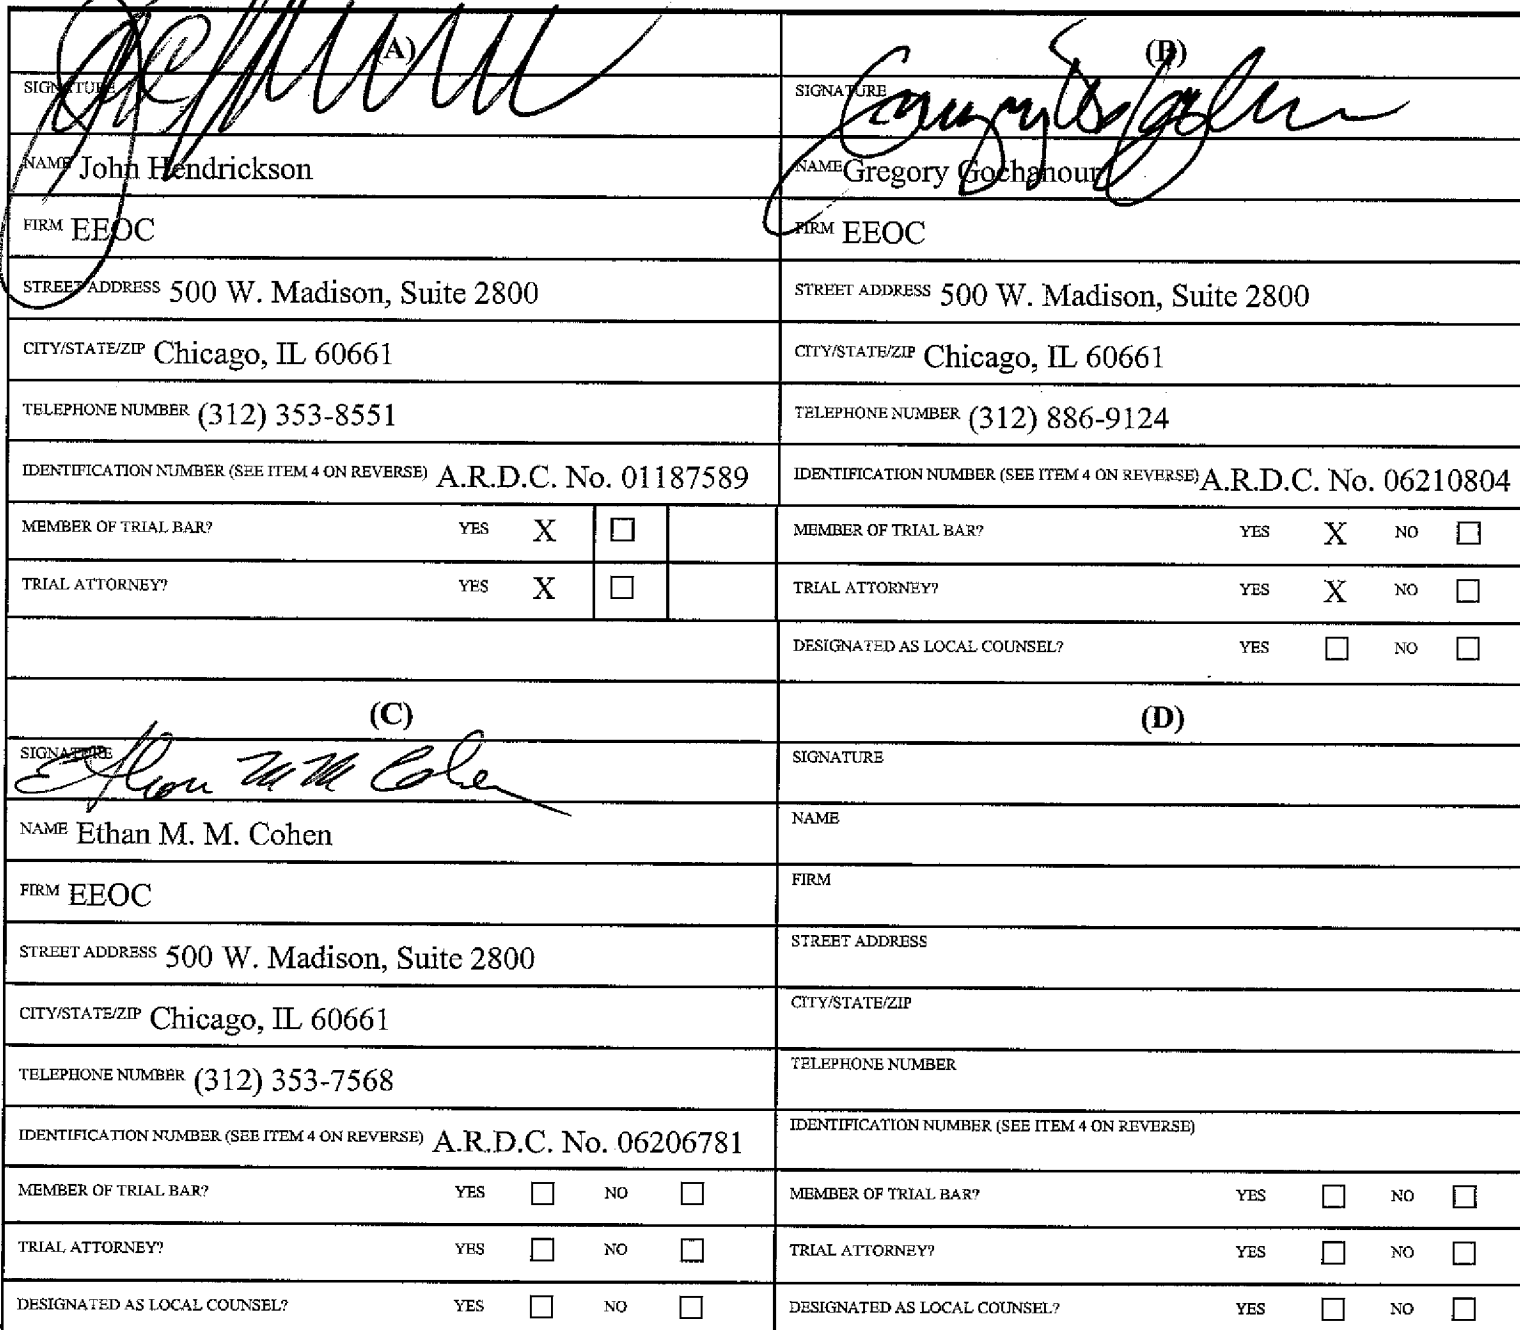 (A)
SIGNATURE
NAME John Hendrickson
FIRM EEOC
STREET ADDRESS 500 W. Madison, Suite 2800
CITY/STATE/ZIP Chicago, IL 60661
TELEPHONE NUMBER (312) 353-8551
IDENTIFICATION NUMBER (SEE ITEM 4 ON REVERSE) A.R.D.C. No. 01187589
MEMBER OF TRIAL BAR? YES X ☐
TRIAL ATTORNEY? YES X ☐
(B)
SIGNATURE
NAME Gregory Gochanour
FIRM EEOC
STREET ADDRESS 500 W. Madison, Suite 2800
CITY/STATE/ZIP Chicago, IL 60661
TELEPHONE NUMBER (312) 886-9124
IDENTIFICATION NUMBER (SEE ITEM 4 ON REVERSE) A.R.D.C. No. 06210804
MEMBER OF TRIAL BAR? YES X NO ☐
TRIAL ATTORNEY? YES X NO ☐
DESIGNATED AS LOCAL COUNSEL? YES ☐ NO ☐
(C)
SIGNATURE
Ethan M M Cohen
NAME Ethan M. M. Cohen
FIRM EEOC
STREET ADDRESS 500 W. Madison, Suite 2800
CITY/STATE/ZIP Chicago, IL 60661
TELEPHONE NUMBER (312) 353-7568
IDENTIFICATION NUMBER (SEE ITEM 4 ON REVERSE) A.R.D.C. No. 06206781
MEMBER OF TRIAL BAR? YES ☐ NO ☐
TRIAL ATTORNEY? YES ☐ NO ☐
DESIGNATED AS LOCAL COUNSEL? YES ☐ NO ☐
(D)
SIGNATURE
NAME
FIRM
STREET ADDRESS
CITY/STATE/ZIP
TELEPHONE NUMBER
IDENTIFICATION NUMBER (SEE ITEM 4 ON REVERSE)
MEMBER OF TRIAL BAR? YES ☐ NO ☐
TRIAL ATTORNEY? YES ☐ NO ☐
DESIGNATED AS LOCAL COUNSEL? YES ☐ NO ☐